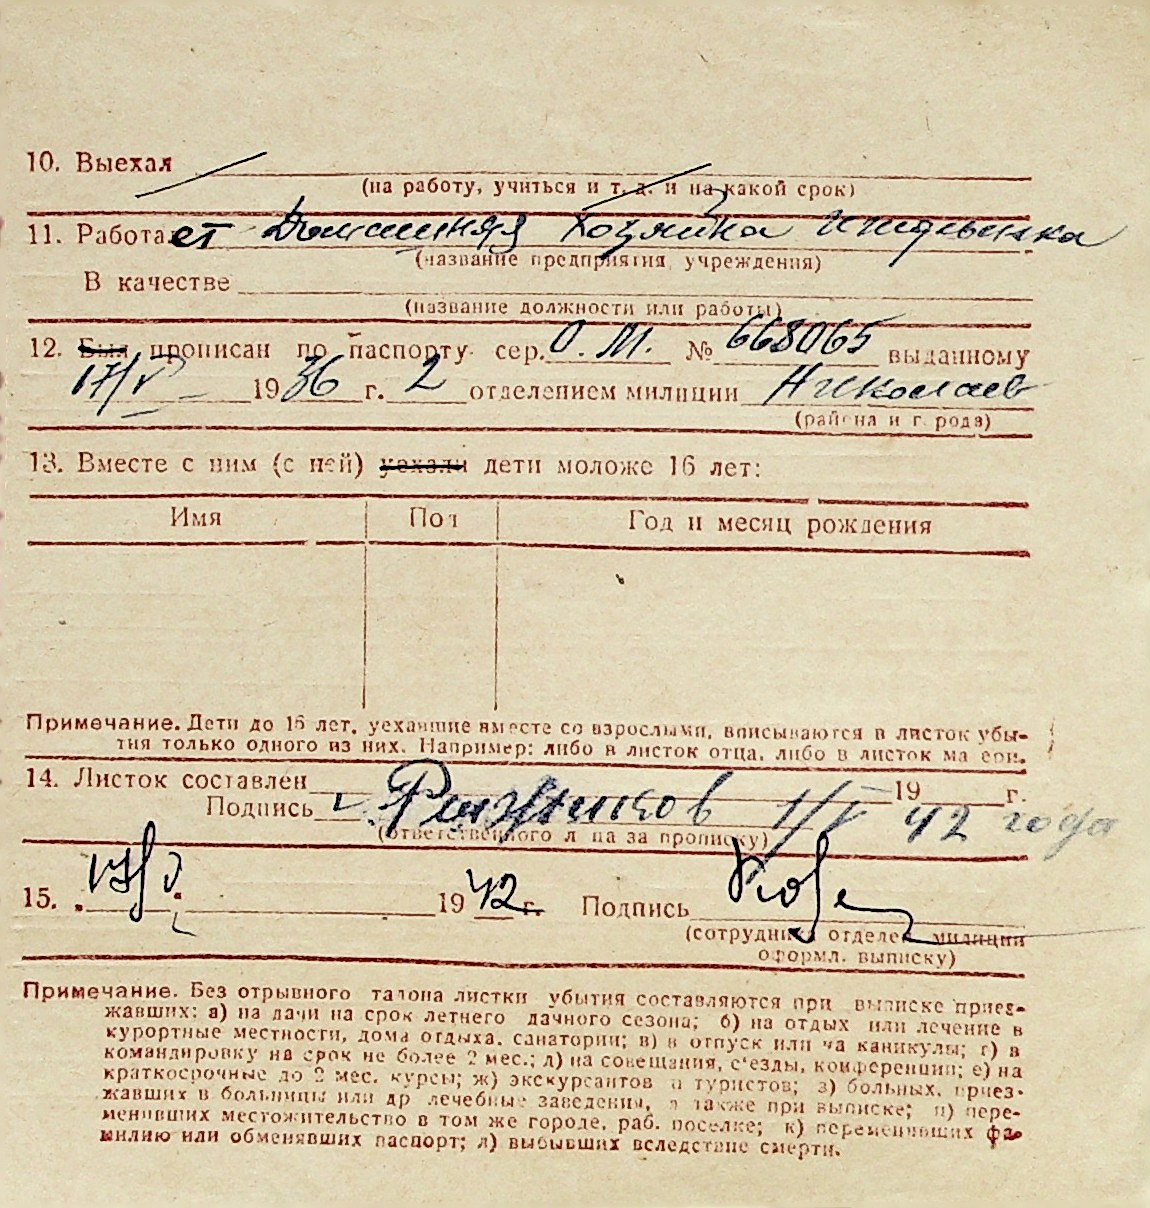 10. Выехал
(на работу, учиться и т. д. и на какой срок)
11. Работает Домашняя Хозяйка Иждивенка
(название предприятия, учреждения)
В качестве
(название должности или работы)
12. Был прописан по паспорту сер. О.М. № 668065 выданному
17/V 1936 г. 2 отделением милиции Николаев
(района и города)
13. Вместе с ним (с ней) уехали дети моложе 16 лет:
Имя Пол Год и месяц рождения
Примечание. Дети до 16 лет, уехавшие вместе со взрослыми, вписываются в листок убы-
тия только одного из них. Например: либо в листок отца, либо в листок матери.
14. Листок составлен 19 г.
Подпись 1/V 42 года
(ответственного лица за прописку)
15. 1942 г. Подпись
(сотрудника отделен. милиции
оформл. выписку)
Примечание. Без отрывного талона листки убытия составляются при выписке приез-
жавших: а) на дачи на срок летнего дачного сезона; б) на отдых или лечение в
курортные местности, дома отдыха, санатории; в) в отпуск или на каникулы; г) в
командировку на срок не более 2 мес.; д) на совещания, с'езды, конференции; е) на
краткосрочные до 2 мес. курсы; ж) экскурсантов и туристов; з) больных, приез-
жавших в больницы или др лечебные заведения, а также при выписке; и) пере-
менивших местожительство в том же городе, раб. поселке; к) переменивших фа-
милию или обменявших паспорт; л) выбывших вследствие смерти.